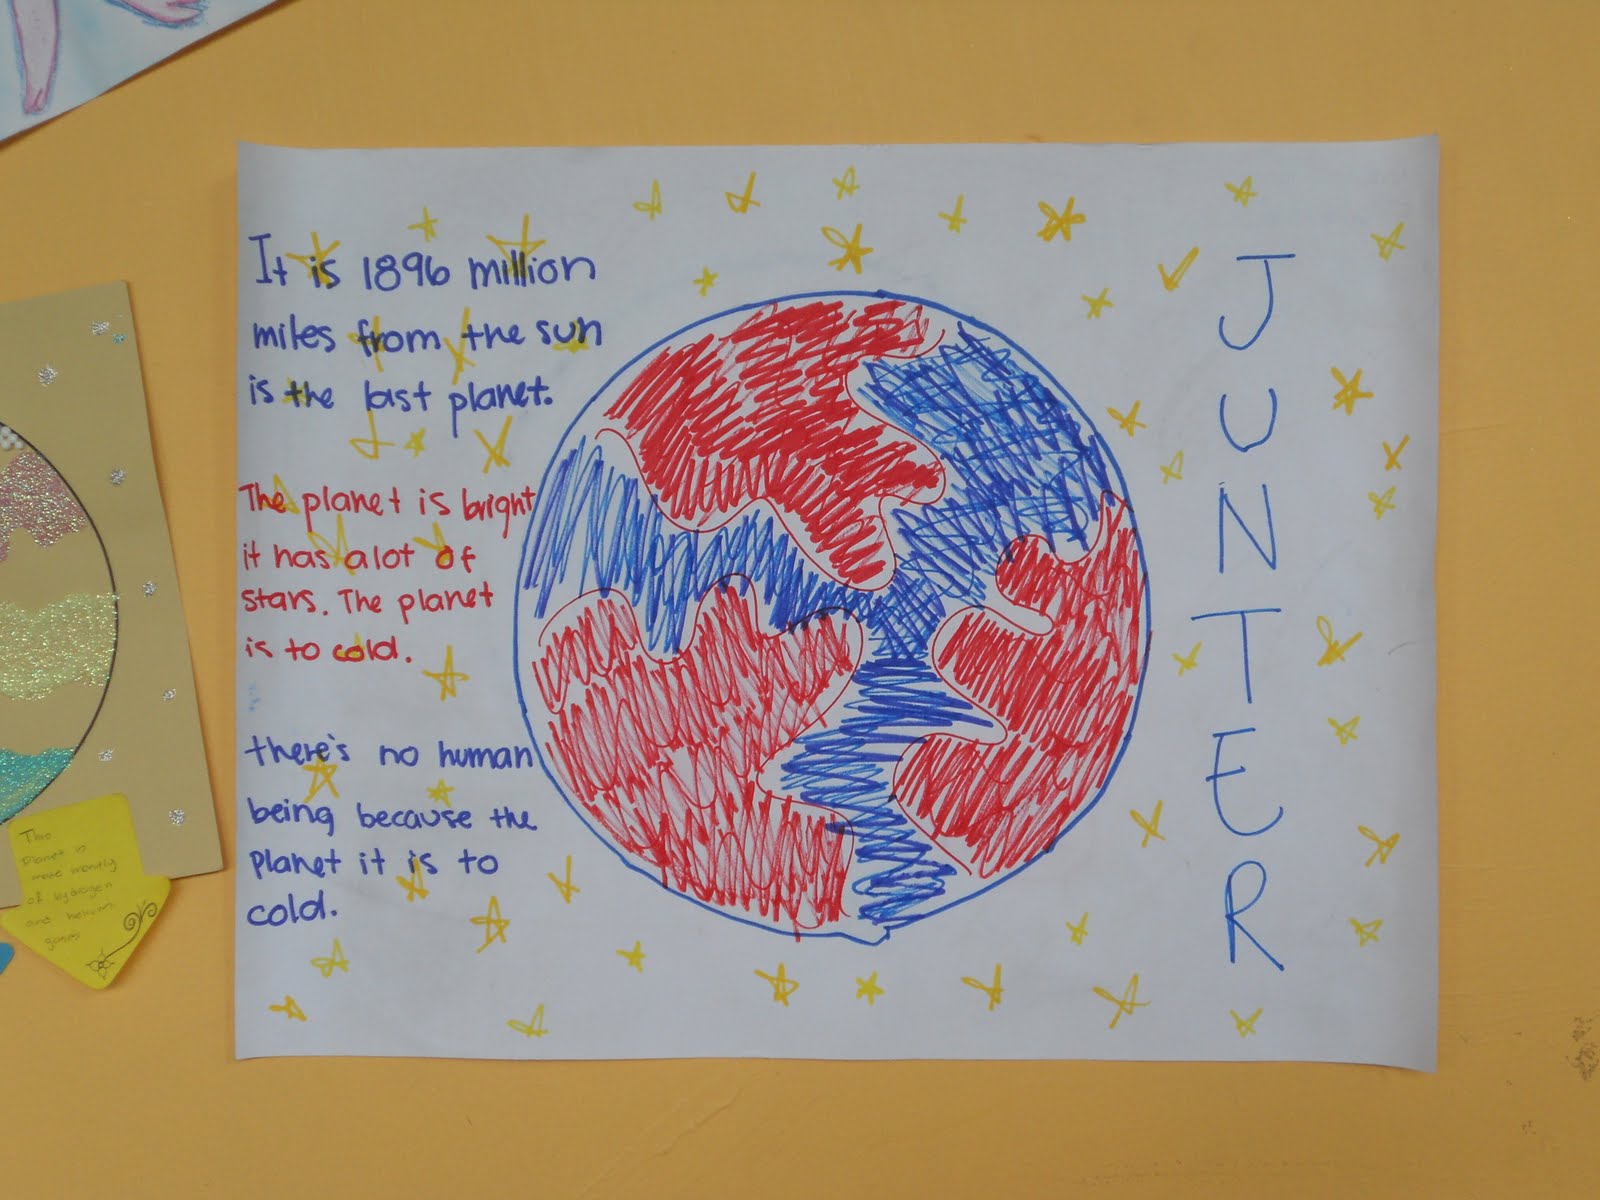 It is 1896 million
miles from the sun
is the last planet.
The planet is bright
it has a lot of
stars. The planet
is to cold.
there's no human
being because the
planet it is to
cold.
J
U
N
T
E
R
This
Planet is
made mostly
of hydrogen
and helium
gases